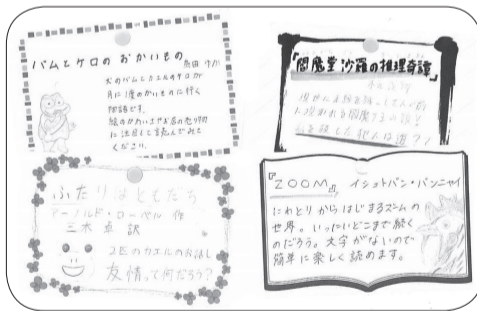 バムとケロのおかいもの
島田 ゆか
犬のバムとカエルのケロが
月に1度のかいものに行く
物語です。
絵のかわいさやお店の売り物
に注目して読んでみて
ください。
『閻魔堂沙羅の推理奇譚』
ふたりはともだち
アーノルド・ローベル 作
三木 卓 訳
2匹のカエルのお話し
友情って何だろう?
『ZOOM』 イシュトバン・バンニャイ
にわとりからはじまるズームの
世界。いったいどこまで続く
のだろう。文字がないので
簡単に楽しく読めます。